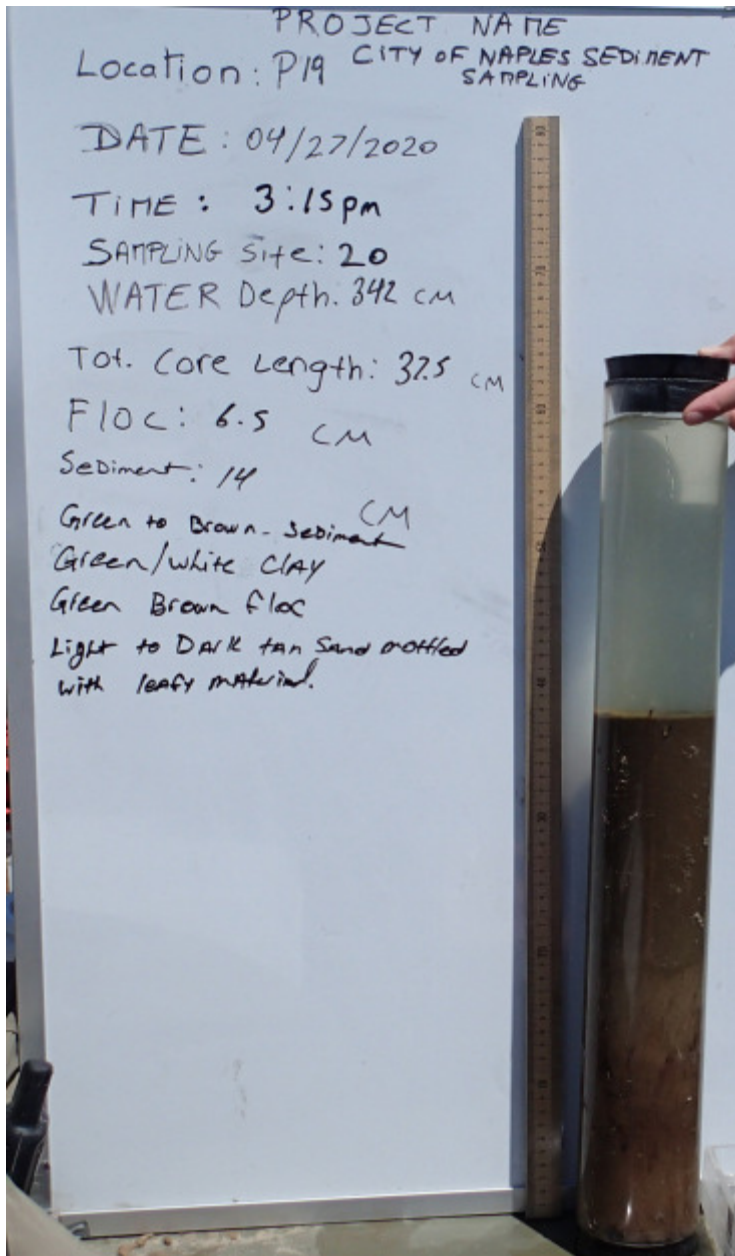 PROJECT NAME
Location: P19 CITY OF NAPLES SEDIMENT
SAMPLING
DATE: 04/27/2020
TIME: 3:15pm
SAMPLING Site: 20
WATER Depth: 342 CM
Tot. Core Length: 37.5 CM
Floc: 6.5 CM
Sediment: 14 CM
Green to Brown - Sediment
Green/white CLAY
Green Brown floc
Light to Dark tan Sand mottled
with leafy material.
80
70
60
50
40
30
20
10